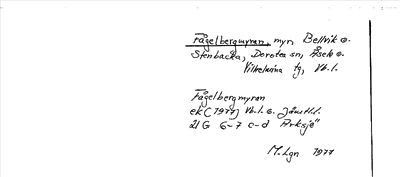 Fågelbergmyran, myr, Bellvik o.
Stenbacka, Dorotea sn, Åsele o.
Vilhelmina tg, Vb.l.
Fågelbergmyran
ek (1977) Vb.l. o. Jämtl.l.
21G 6-7 c-d "Arksjö"
M.Lgn 1977